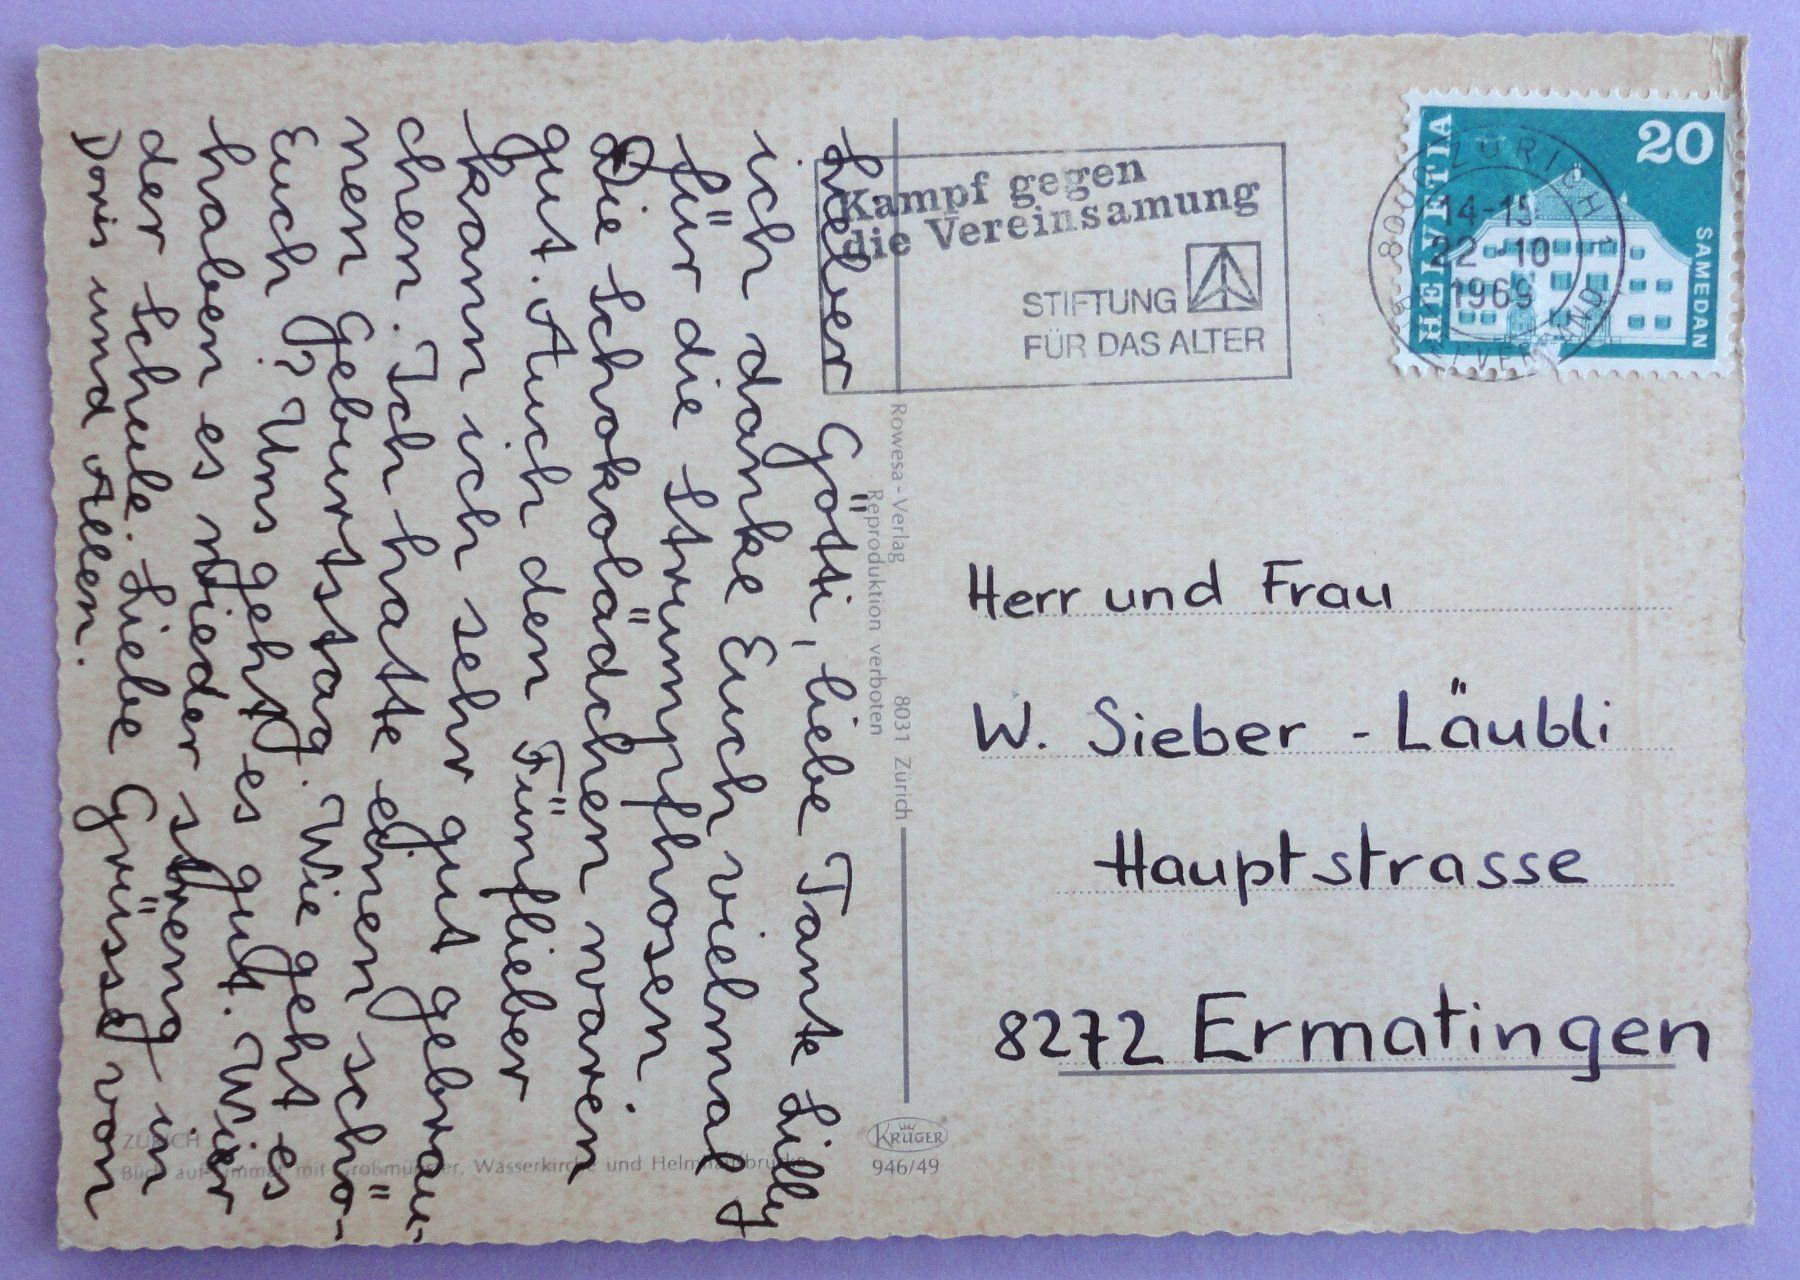 Lieber Götti, liebe Tante Lilly
ich danke Euch vielmal
für die Strumpfhosen
Die Schokolädchen waren
gut. Auch den Fünflieber
kann ich sehr gut gebrau-
chen. Ich hatte einen schö-
nen Geburtstag. Wie geht es
Euch? Uns geht es gut. Wier
haben es wieder streng in
der Schule. Liebe Grüsse von
Doris und Allen.
Kampf gegen
die Vereinsamung
STIFTUNG
FÜR DAS ALTER
HELVETIA
20
SAMEDAN
ZÜRICH 1
14-15
22-10
1969
BRIEFVERSAND
Rowesa-Verlag 8031 Zürich
Reproduktion verboten
Herr und Frau
W. Sieber - Läubli
Hauptstrasse
8272 Ermatingen
KRÜGER
946/49
ZÜRICH
Blick auf Limmat mit Großmünster, Wasserkirche und Helmhausbrücke